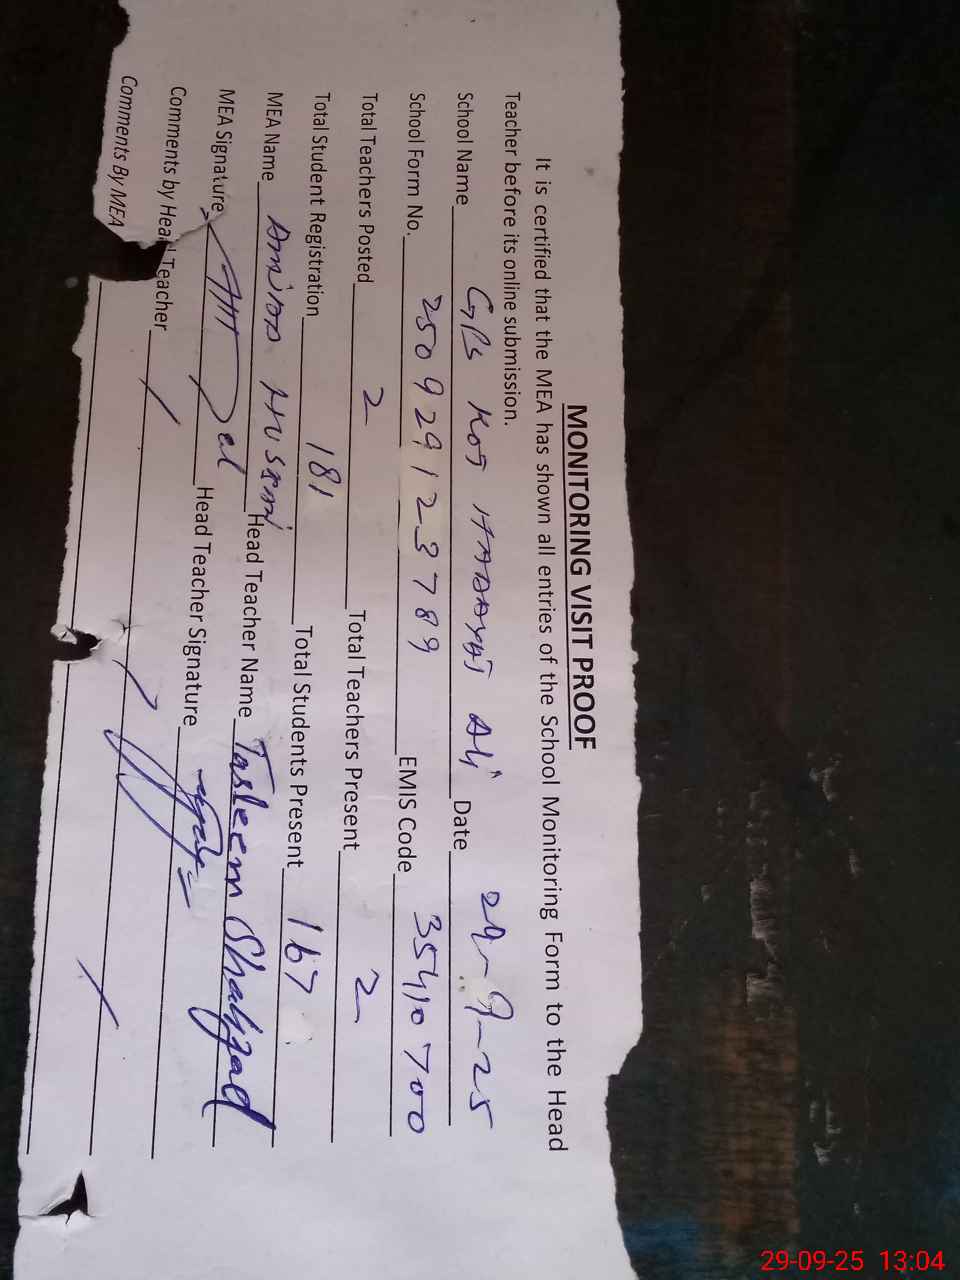 MONITORING VISIT PROOF
It is certified that the MEA has shown all entries of the School Monitoring Form to the Head
Teacher before its online submission.
School Name GPS KOT HADAYAT Ali Date 29-9-25
School Form No. 250929123789 EMIS Code 35410700
Total Teachers Posted 2 Total Teachers Present 2
Total Student Registration 181 Total Students Present 167
MEA Name Head Teacher Name Tasleem Shahzad
MEA Signature Head Teacher Signature
Comments by Head Teacher
Comments By MEA
29-09-25 13:04